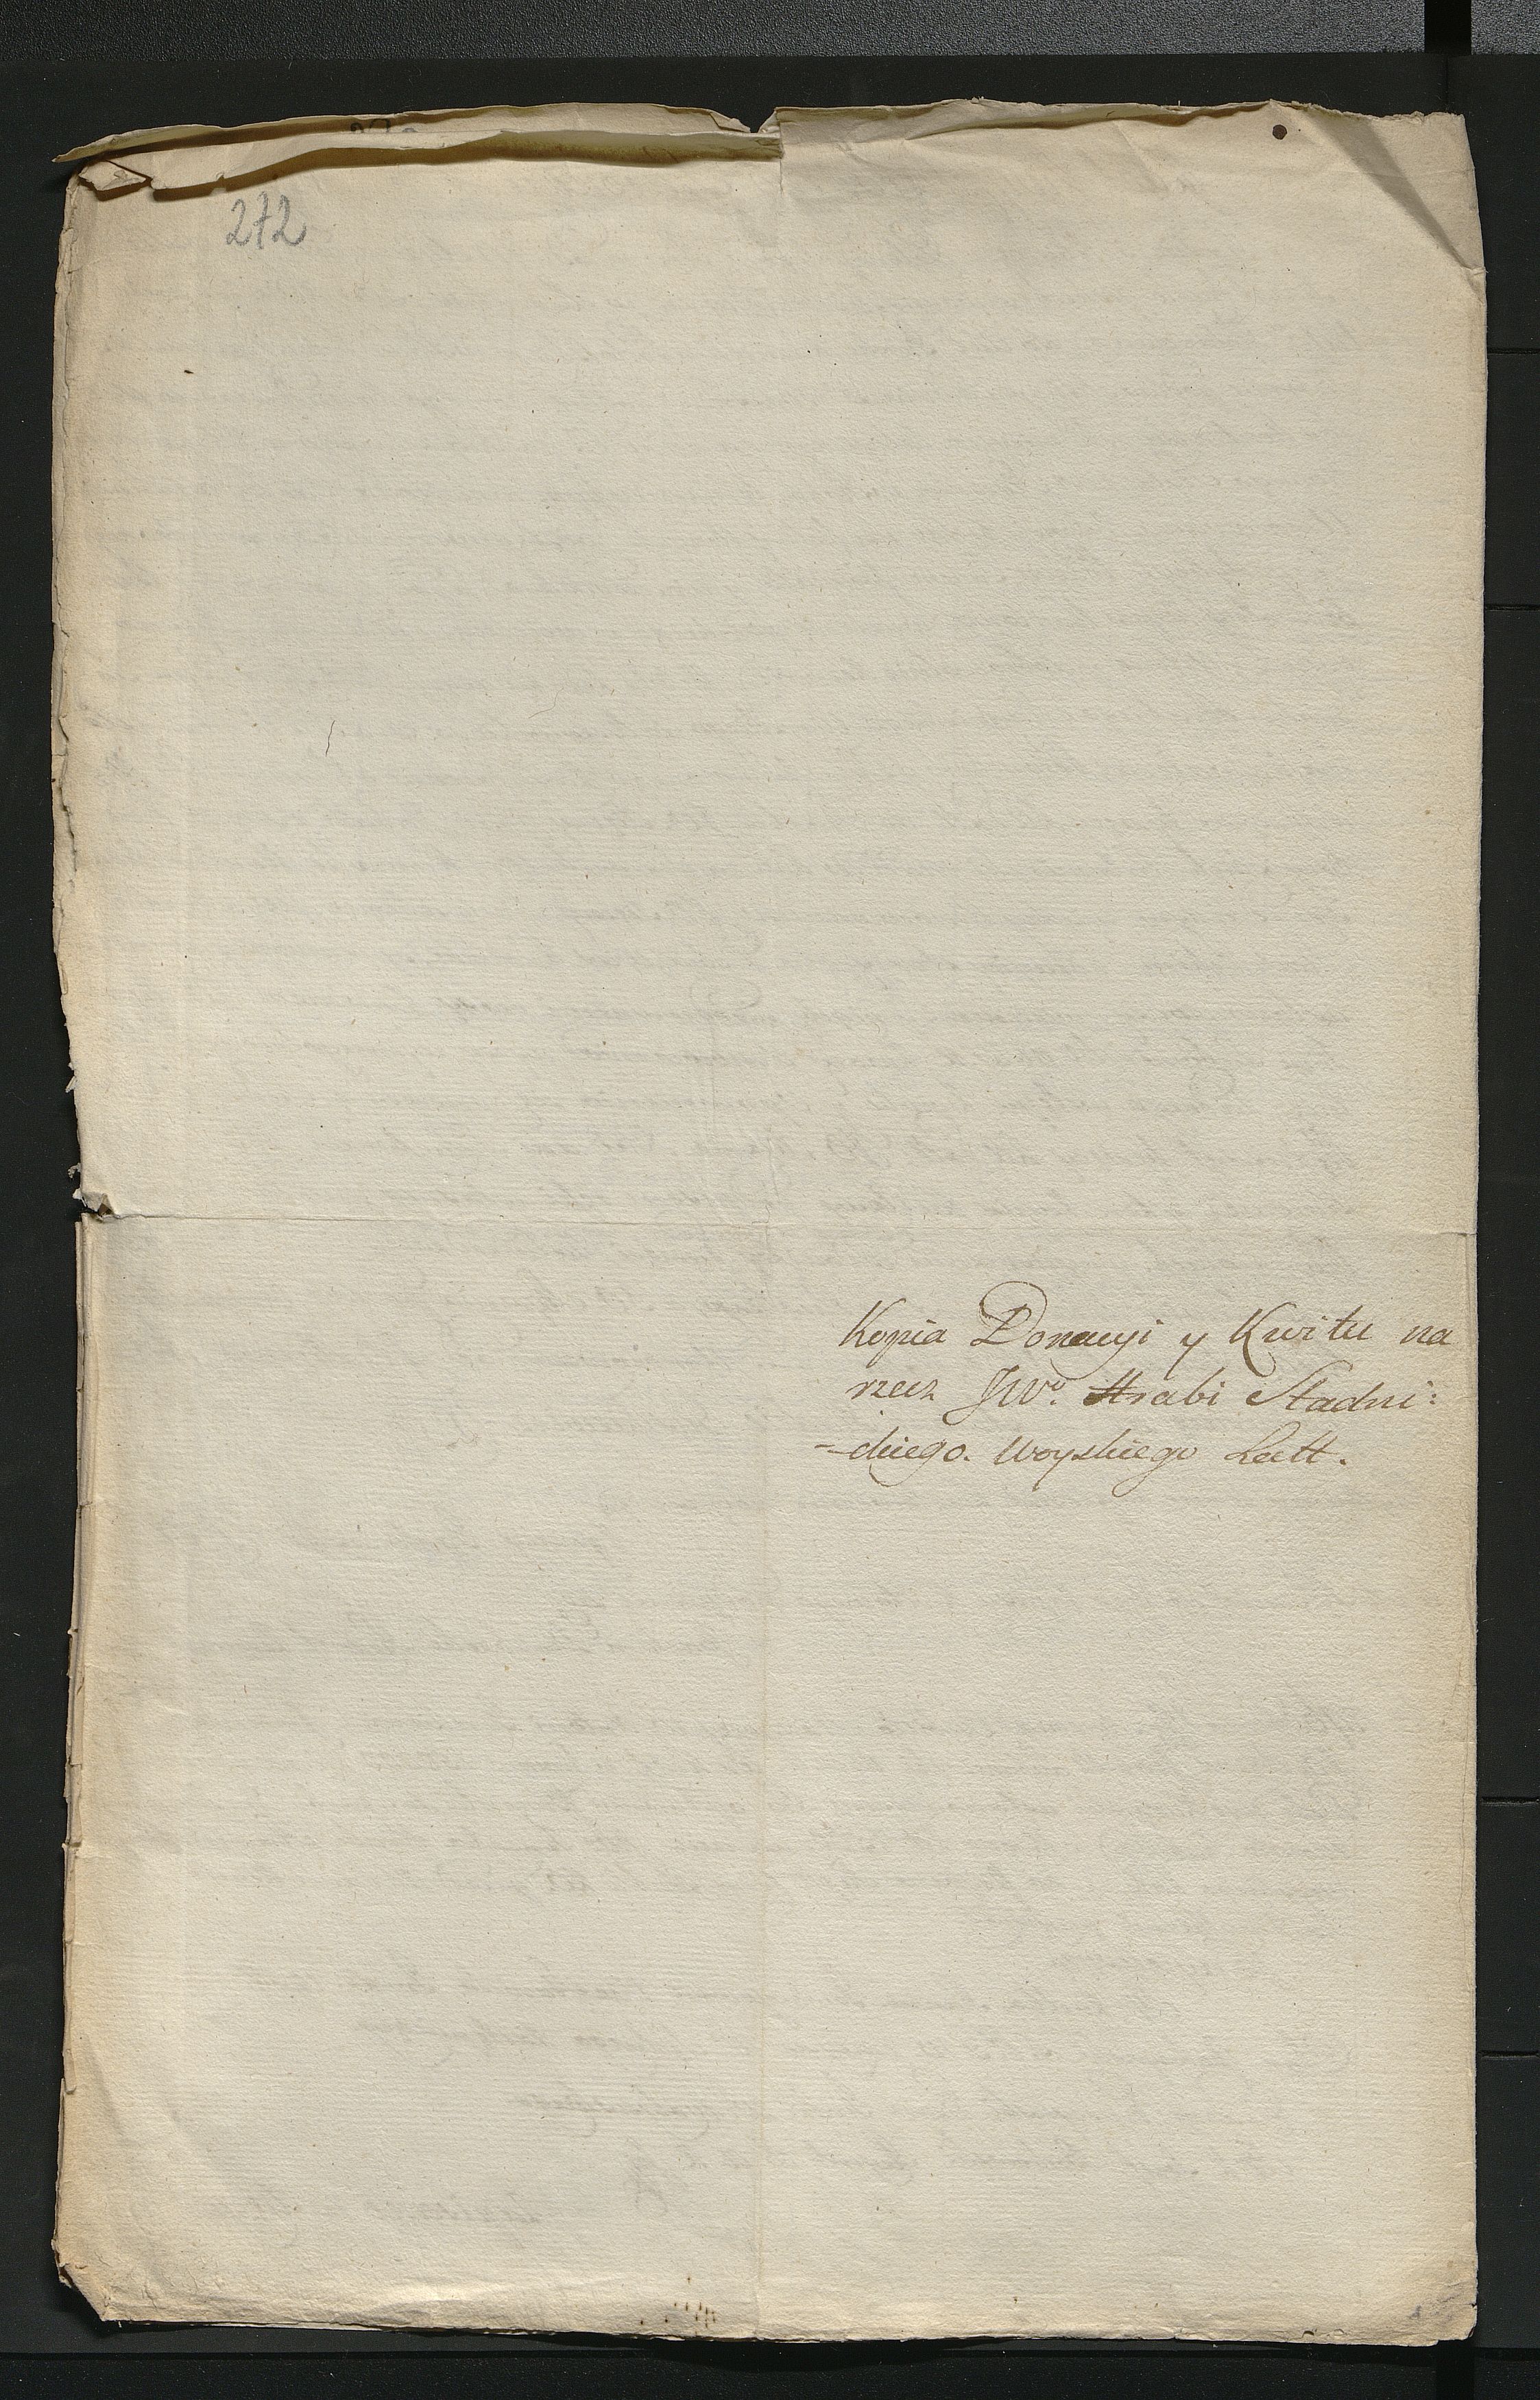 272
Kopia Donacyi y Kwitu na
rzecz JWo. Hrabi Stadni:
-ckiego. Woyskiego